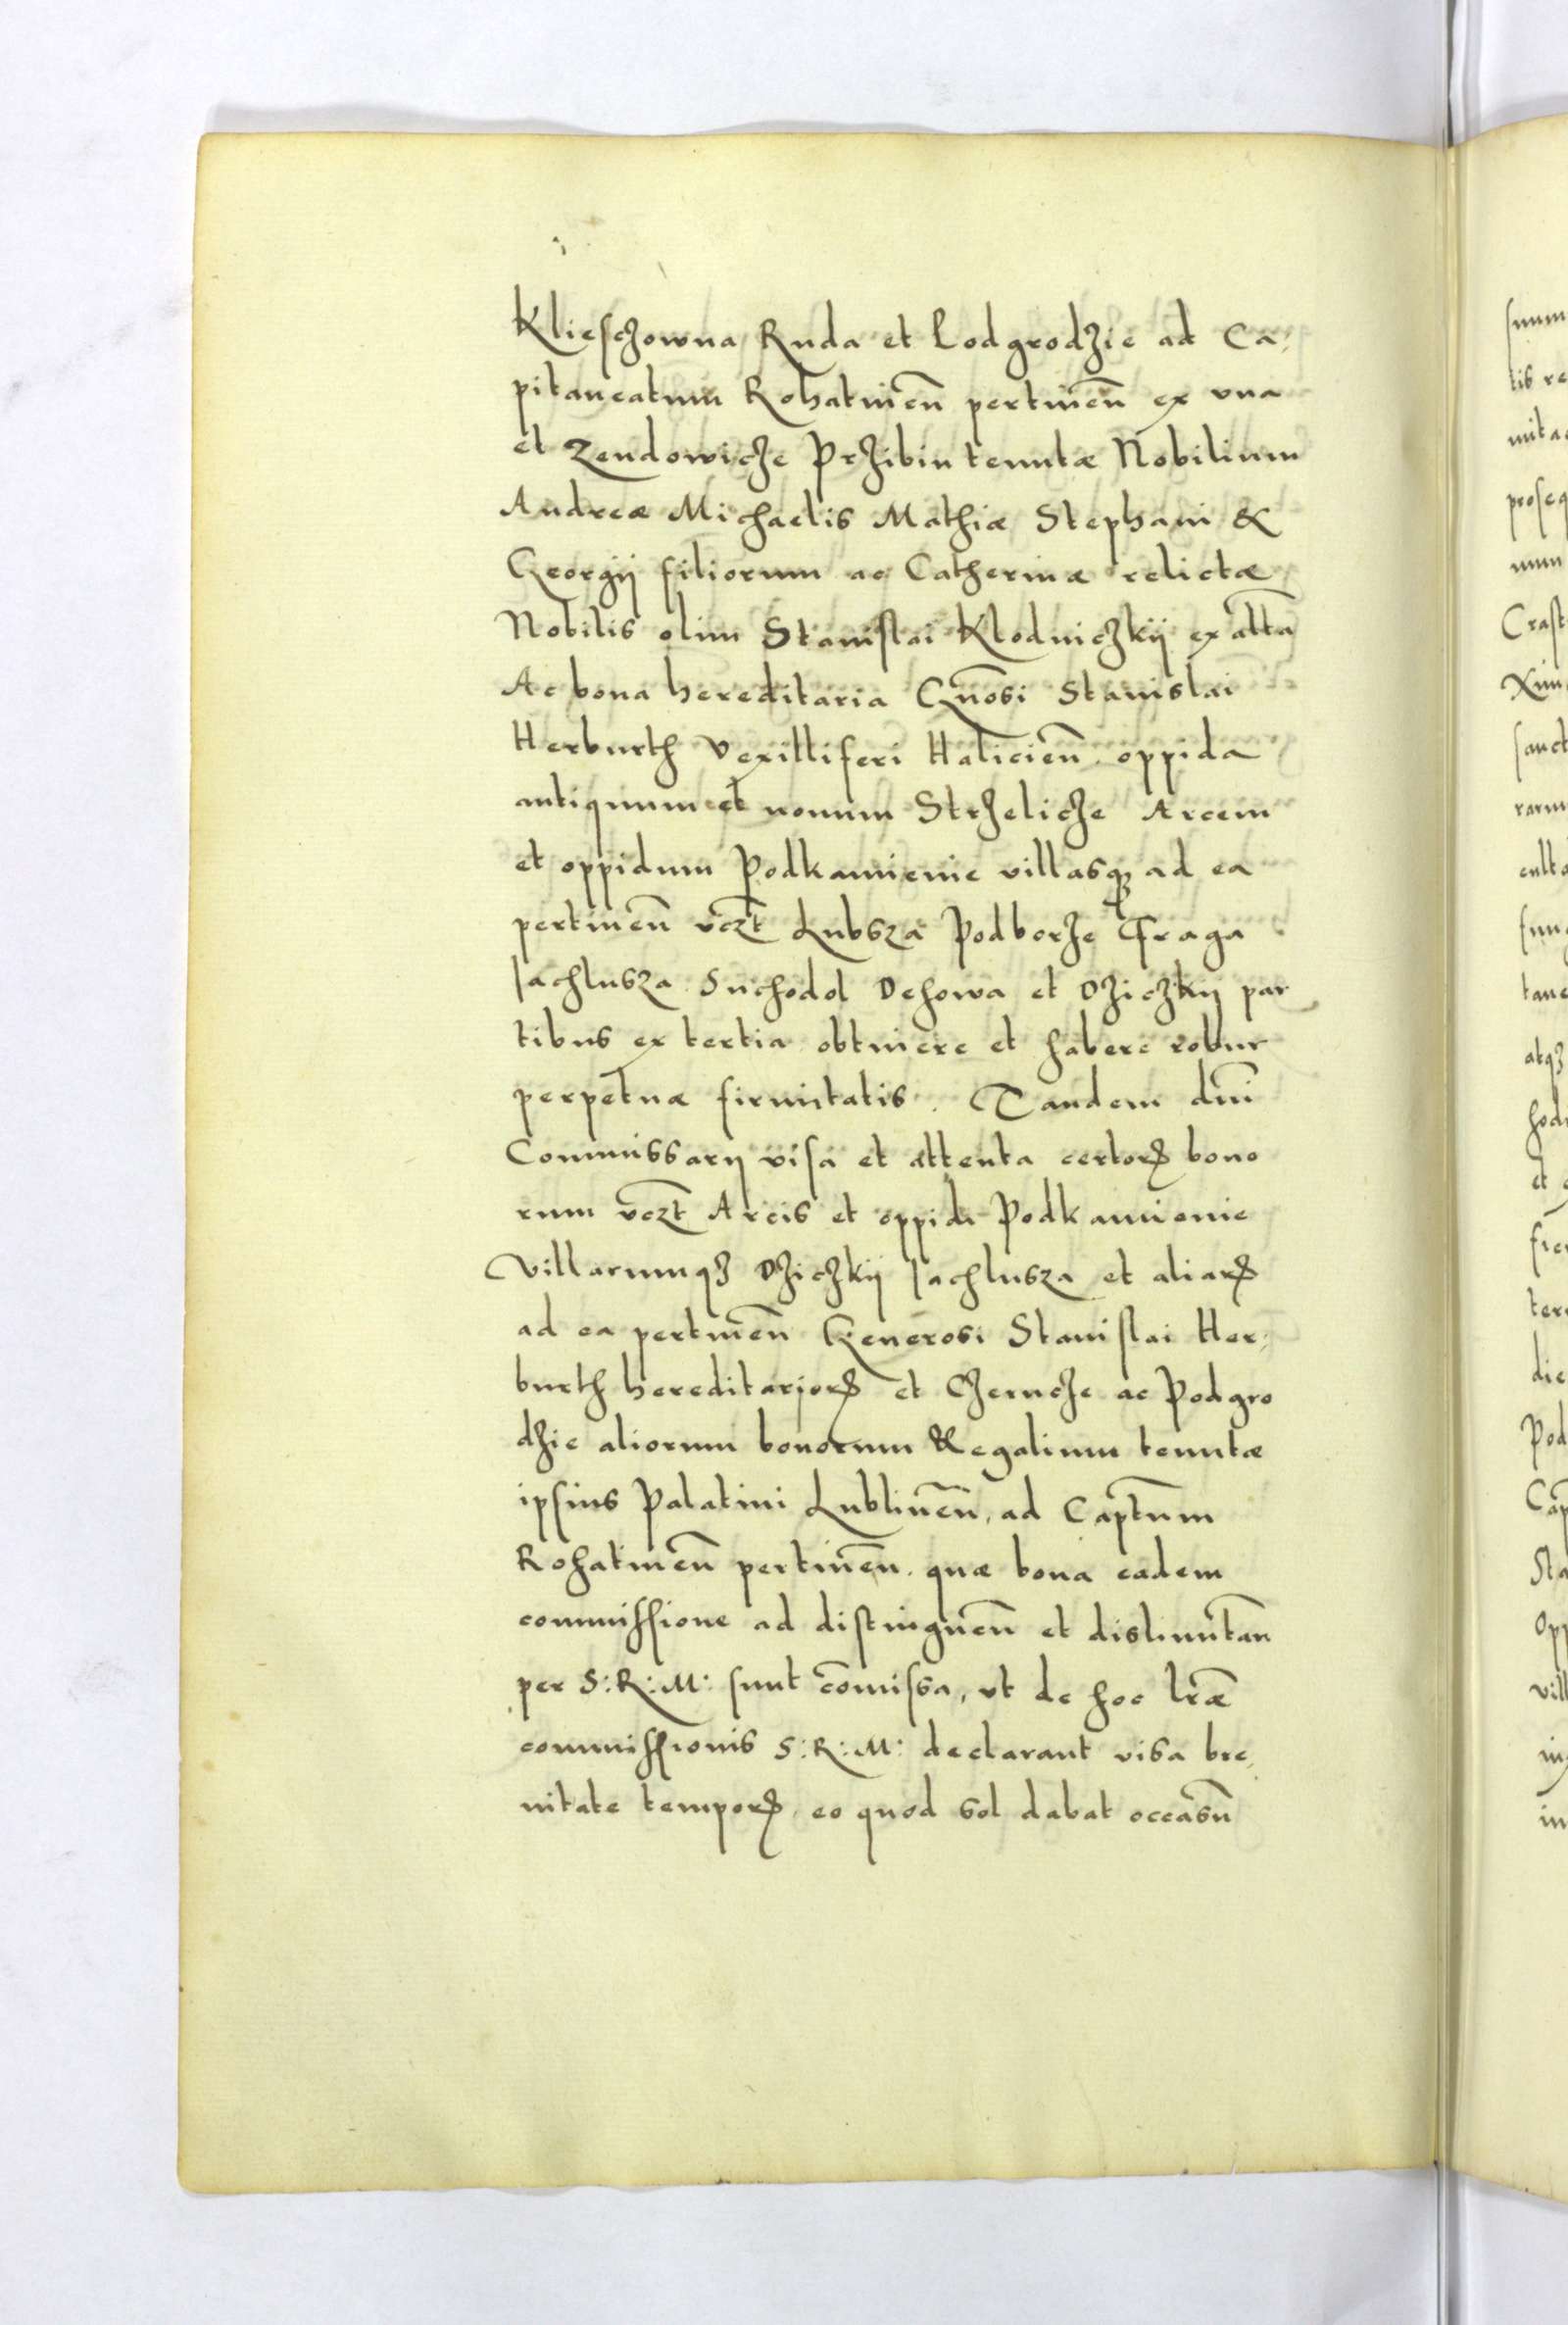 Klieschowna Ruda et Podgrodzie ad Ca-
pitaneatum Rohatineñ pertineñ ex vna
et Zendowicze Przibin tenutæ Nobilium
Andreæ Michaelis Mathiæ Stephani &
Georgij filiorum ac Catherinæ relictæ
Nobilis olim Stanislai Klodniczkij ex alt̃a
Ac bona hereditaria Gñosi Stanislai
Herburth Vexilliferi Halicieñ oppida
antiquum et nouum Strzelicze Arcem
et oppidum Podkamienie villasqꝫ ad ea
pertineñ vcz̃t Lubsza Podborze Fraga
Jachlusza Suchodol Dehowa et Dziczkij par
tibus ex tertia obtinere et habere robur
perpetuæ firmitatis. Tandem dñi
Commissarij visa et attenta certorꝝ bono
rum vcz̃t Arcis et oppidi Podkamienie
Villarumqꝫ Dziczkij Jachlusza et aliarꝝ
ad ea pertineñ Generosi Stanislai Her-
burth hereditariorꝝ et Czercze ac Podgro
dzie aliorum bonorum Regalium tenutæ
ipsius Palatini Lublineñ, ad Capt̃um
Rohatineñ pertineñ. quæ bona eadem
commissione ad distingueñ et dislimitañ
per S: R: M: sunt com̃issa, vt de hoc lr̃æ
commissionis S: R: M: declarant visa bre-
uitate temporꝝ, eo quod sol dabat occasũ
sum
tis re
mita
proseq
num
Crast
Xim
sanct
rarum
culto
fung
tane
atqꝫ
hodi
et
fier
ter
die
Pod
Cap
Sta
Opp
vill
in
in